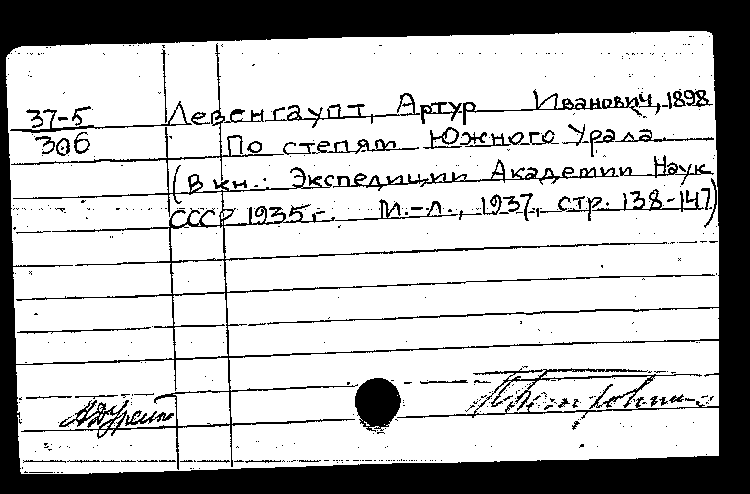 37-5 Левенгаупт, Артур Иванович, 1898
306 По степям Южного Урала.
(В кн.: Экспедиции Академии Наук
СССР 1935 г. М.-Л., 1937, стр. 138-147)